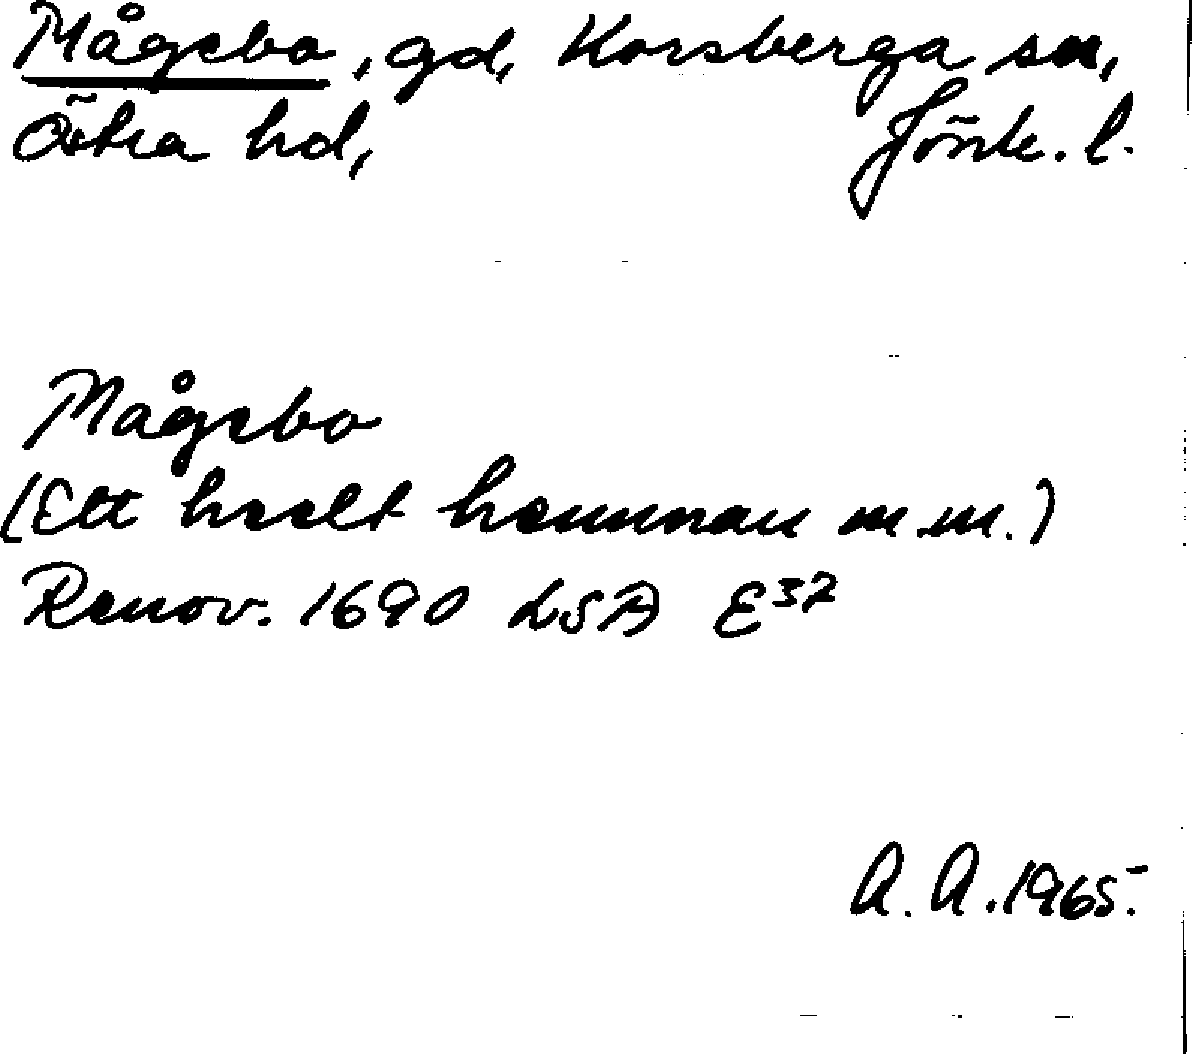 Mågebo, gd, Korsberga sn,
Östra hd, Jönk. l.
Mågebo
(Ett heelt hemman m.m.)
Renov. 1690 LSA E³⁷
A. A. 1965.